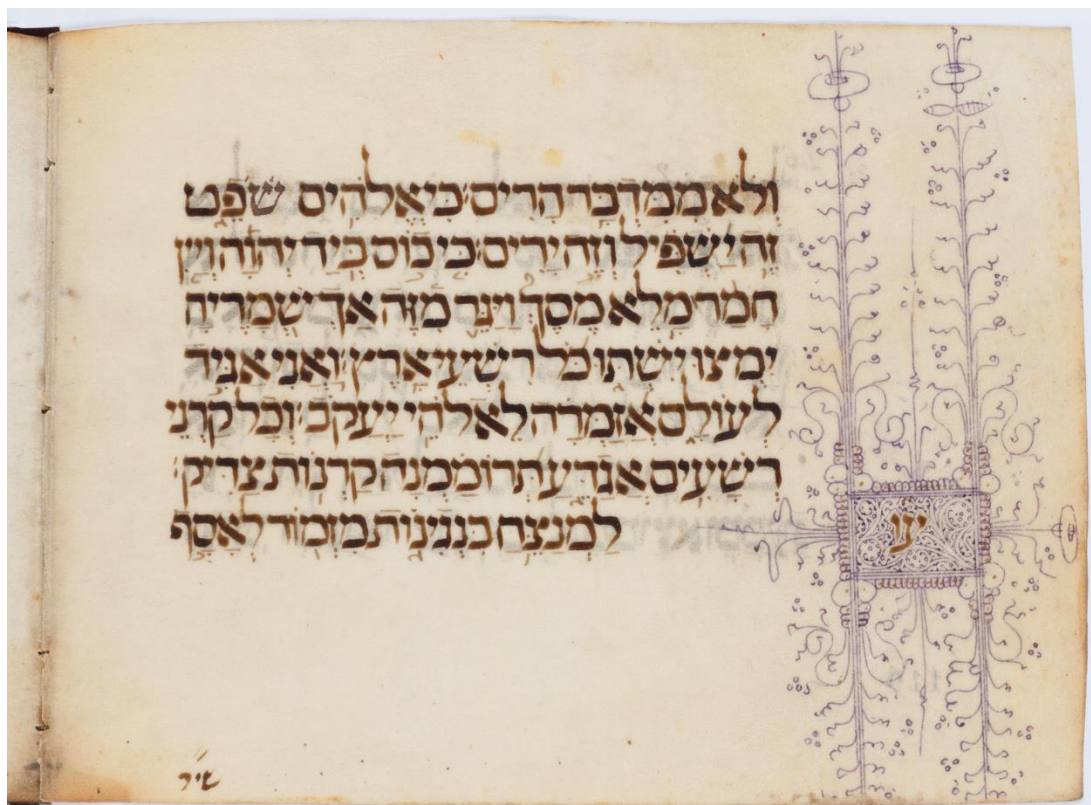 וְלֹא מִמִּדְבַּר הָרִים׃ כִּי אֱלֹהִים שֹׁפֵט
זֶה יַשְׁפִּיל וְזֶה יָרִים׃ כִּי כוֹס בְּיַד יְהוָה וְיַיִן
חָמַר מָלֵא מֶסֶךְ וַיַּגֵּר מִזֶּה אַךְ שְׁמָרֶיהָ
יִמְצוּ יִשְׁתּוּ כֹּל רִשְׁעֵי אָרֶץ׃ וַאֲנִי אַגִּיד
לְעוֹלָם אֲזַמְּרָה לֵאלֹהֵי יַעֲקֹב׃ וְכָל קַרְנֵי
רְשָׁעִים אֲגַדֵּעַ תְּרוֹמַמְנָה קַרְנוֹת צַדִּיק׃
עו
לַמְנַצֵּחַ בִּנְגִינוֹת מִזְמוֹר לְאָסָף
שיר